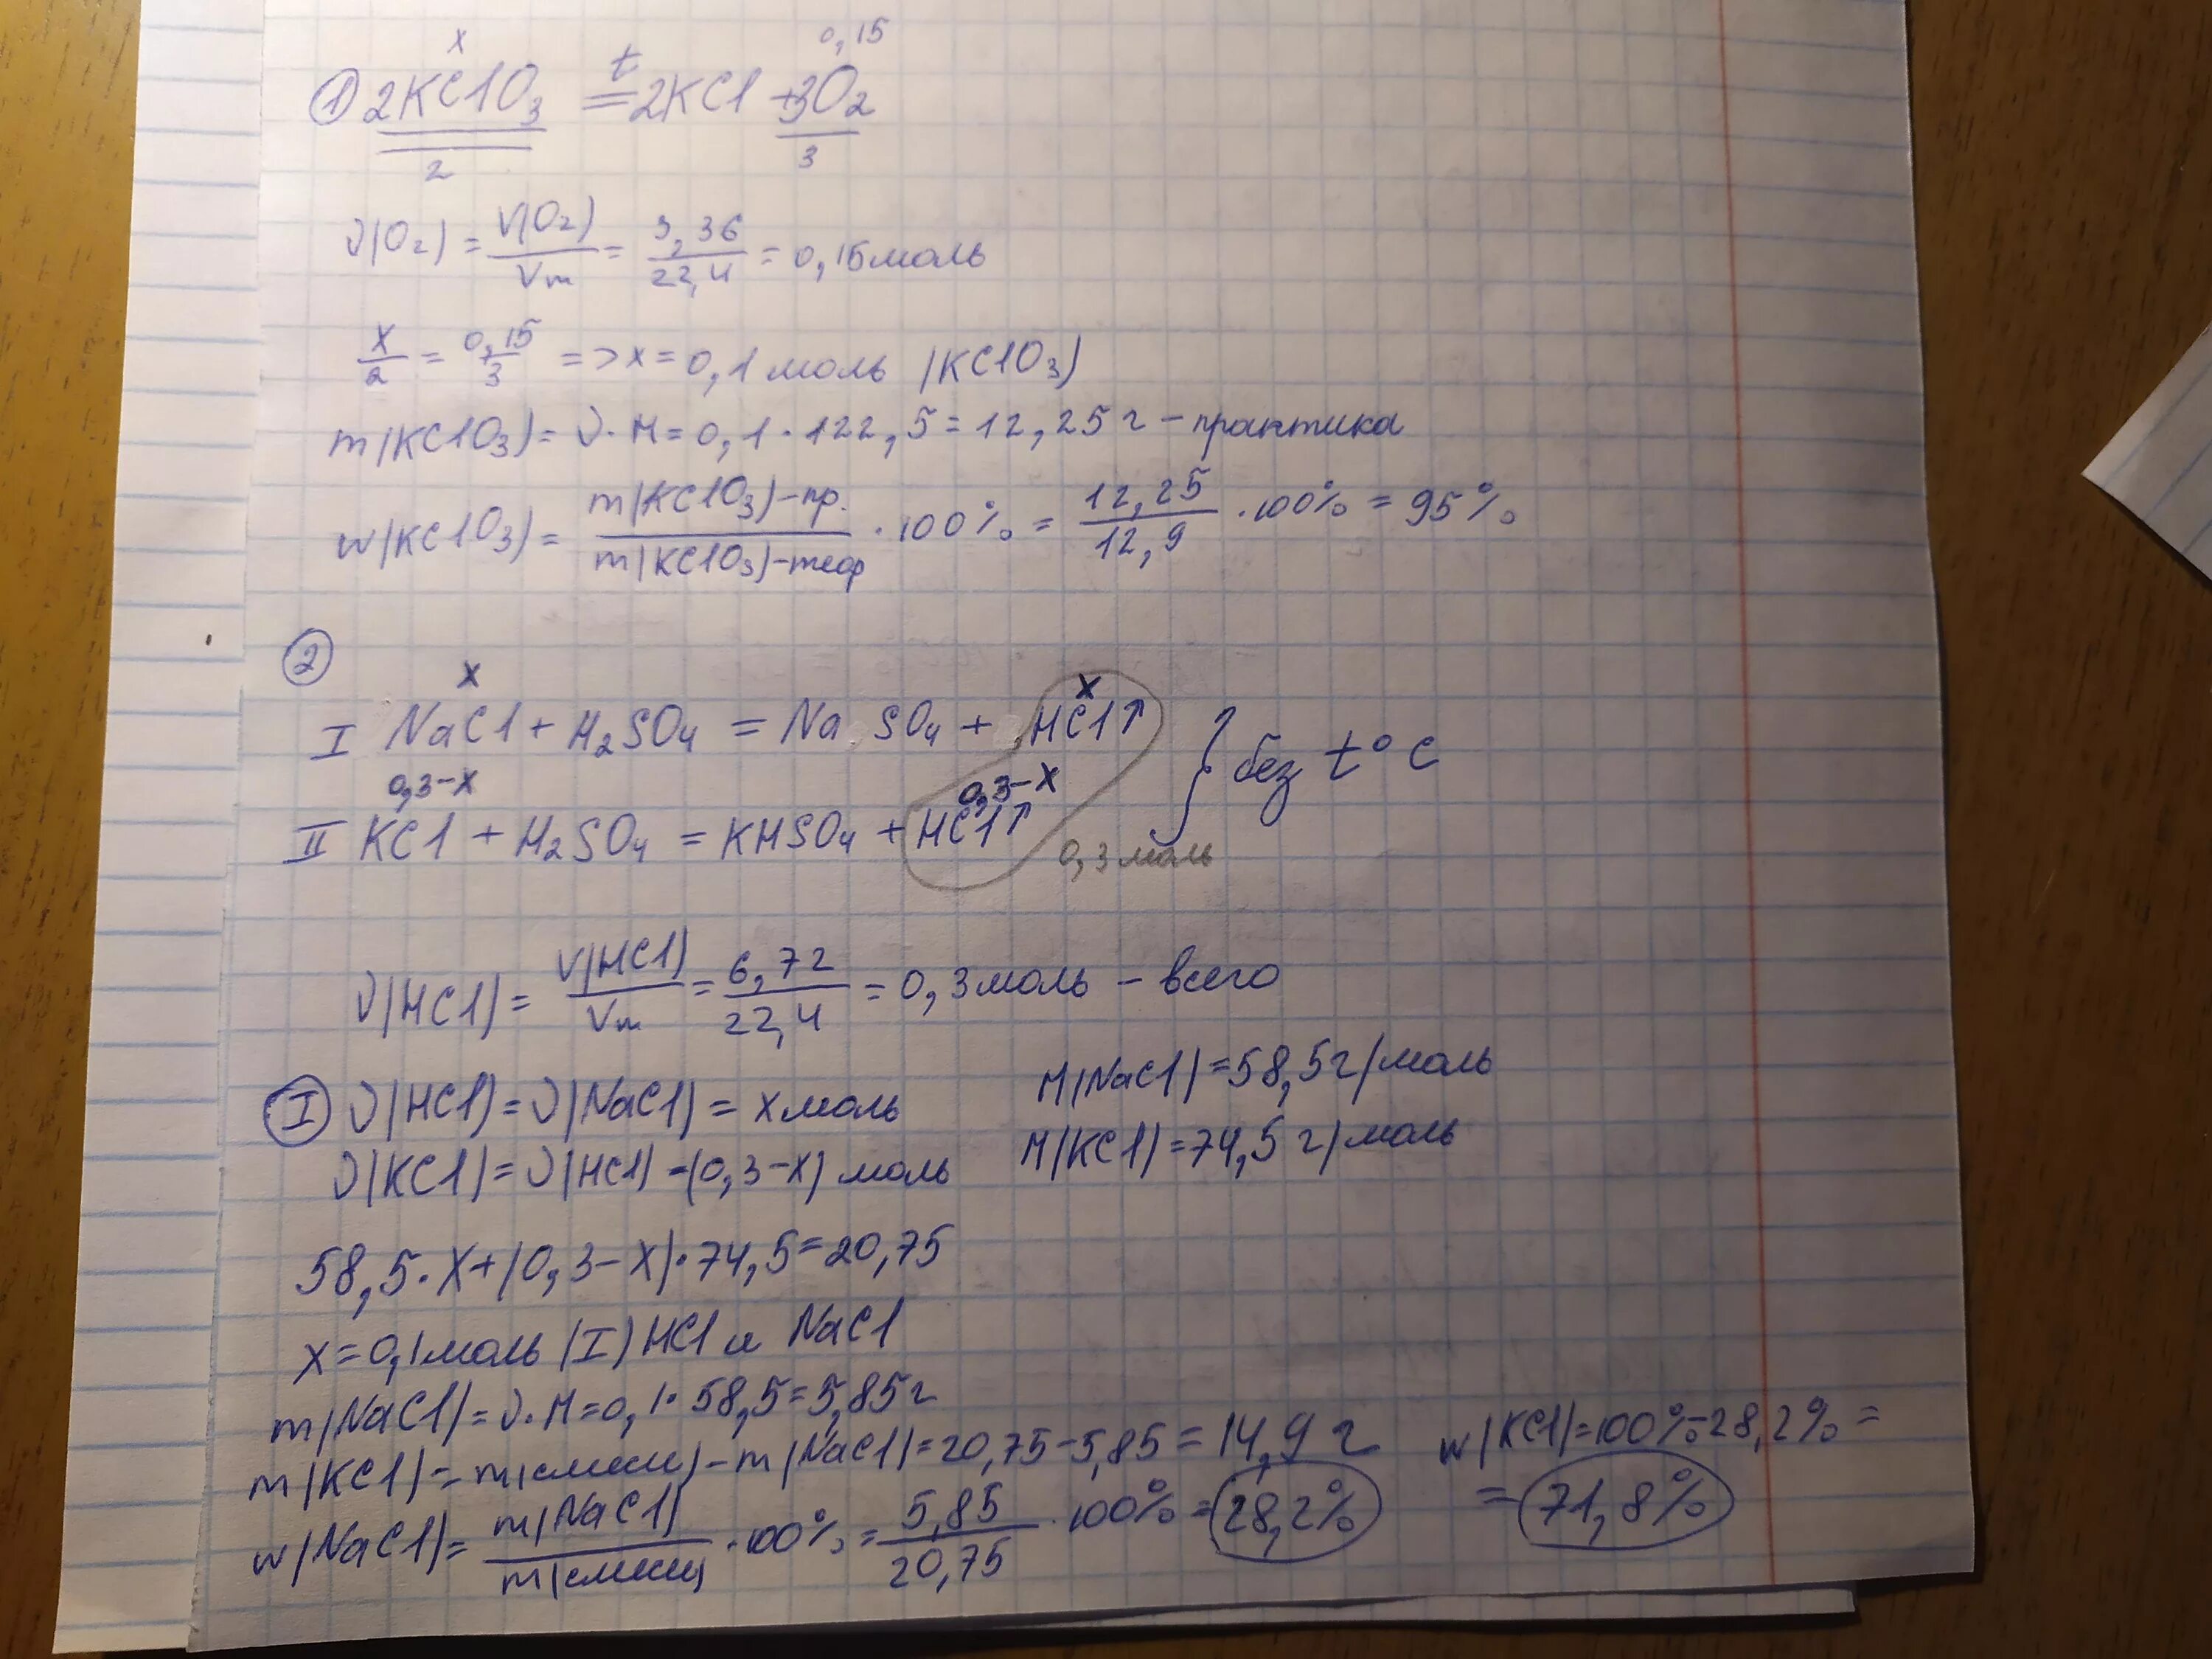 x 0,15
① 2KClO₃ =t= 2KCl + 3O₂
2 3
ν(O₂) = V(O₂)/Vm = 3,36/22,4 = 0,15 моль
x/2 = 0,15/3 => x = 0,1 моль (KClO₃)
m(KClO₃) = ν·M = 0,1·122,5 = 12,25 г – практика
w(KClO₃) = m(KClO₃)-пр./m(KClO₃)-теор · 100% = 12,25/12,9 · 100% = 95%
②
x x
I NaCl + H₂SO₄ = Na SO₄ + HCl↑ } без t°C
0,3-x 0,3-x
II KCl + H₂SO₄ = KHSO₄ + HCl↑
0,3 моль
ν(HCl) = V(HCl)/Vm = 6,72/22,4 = 0,3 моль – всего
Ⓘ ν(HCl) = ν(NaCl) = x моль M(NaCl) = 58,5 г/моль
ν(KCl) = ν(HCl) = (0,3-x) моль M(KCl) = 74,5 г/моль
58,5·x+(0,3-x)·74,5=20,75
x = 0,1 моль (I) HCl и NaCl
m(NaCl) = ν·M = 0,1·58,5 = 5,85 г
m(KCl) = m(смеси) - m(NaCl) = 20,75-5,85 = 14,9 г w(KCl) = 100%-28,2% =
w(NaCl) = m(NaCl)/m(смеси) · 100% = 5,85/20,75 · 100% = 28,2% = 71,8%